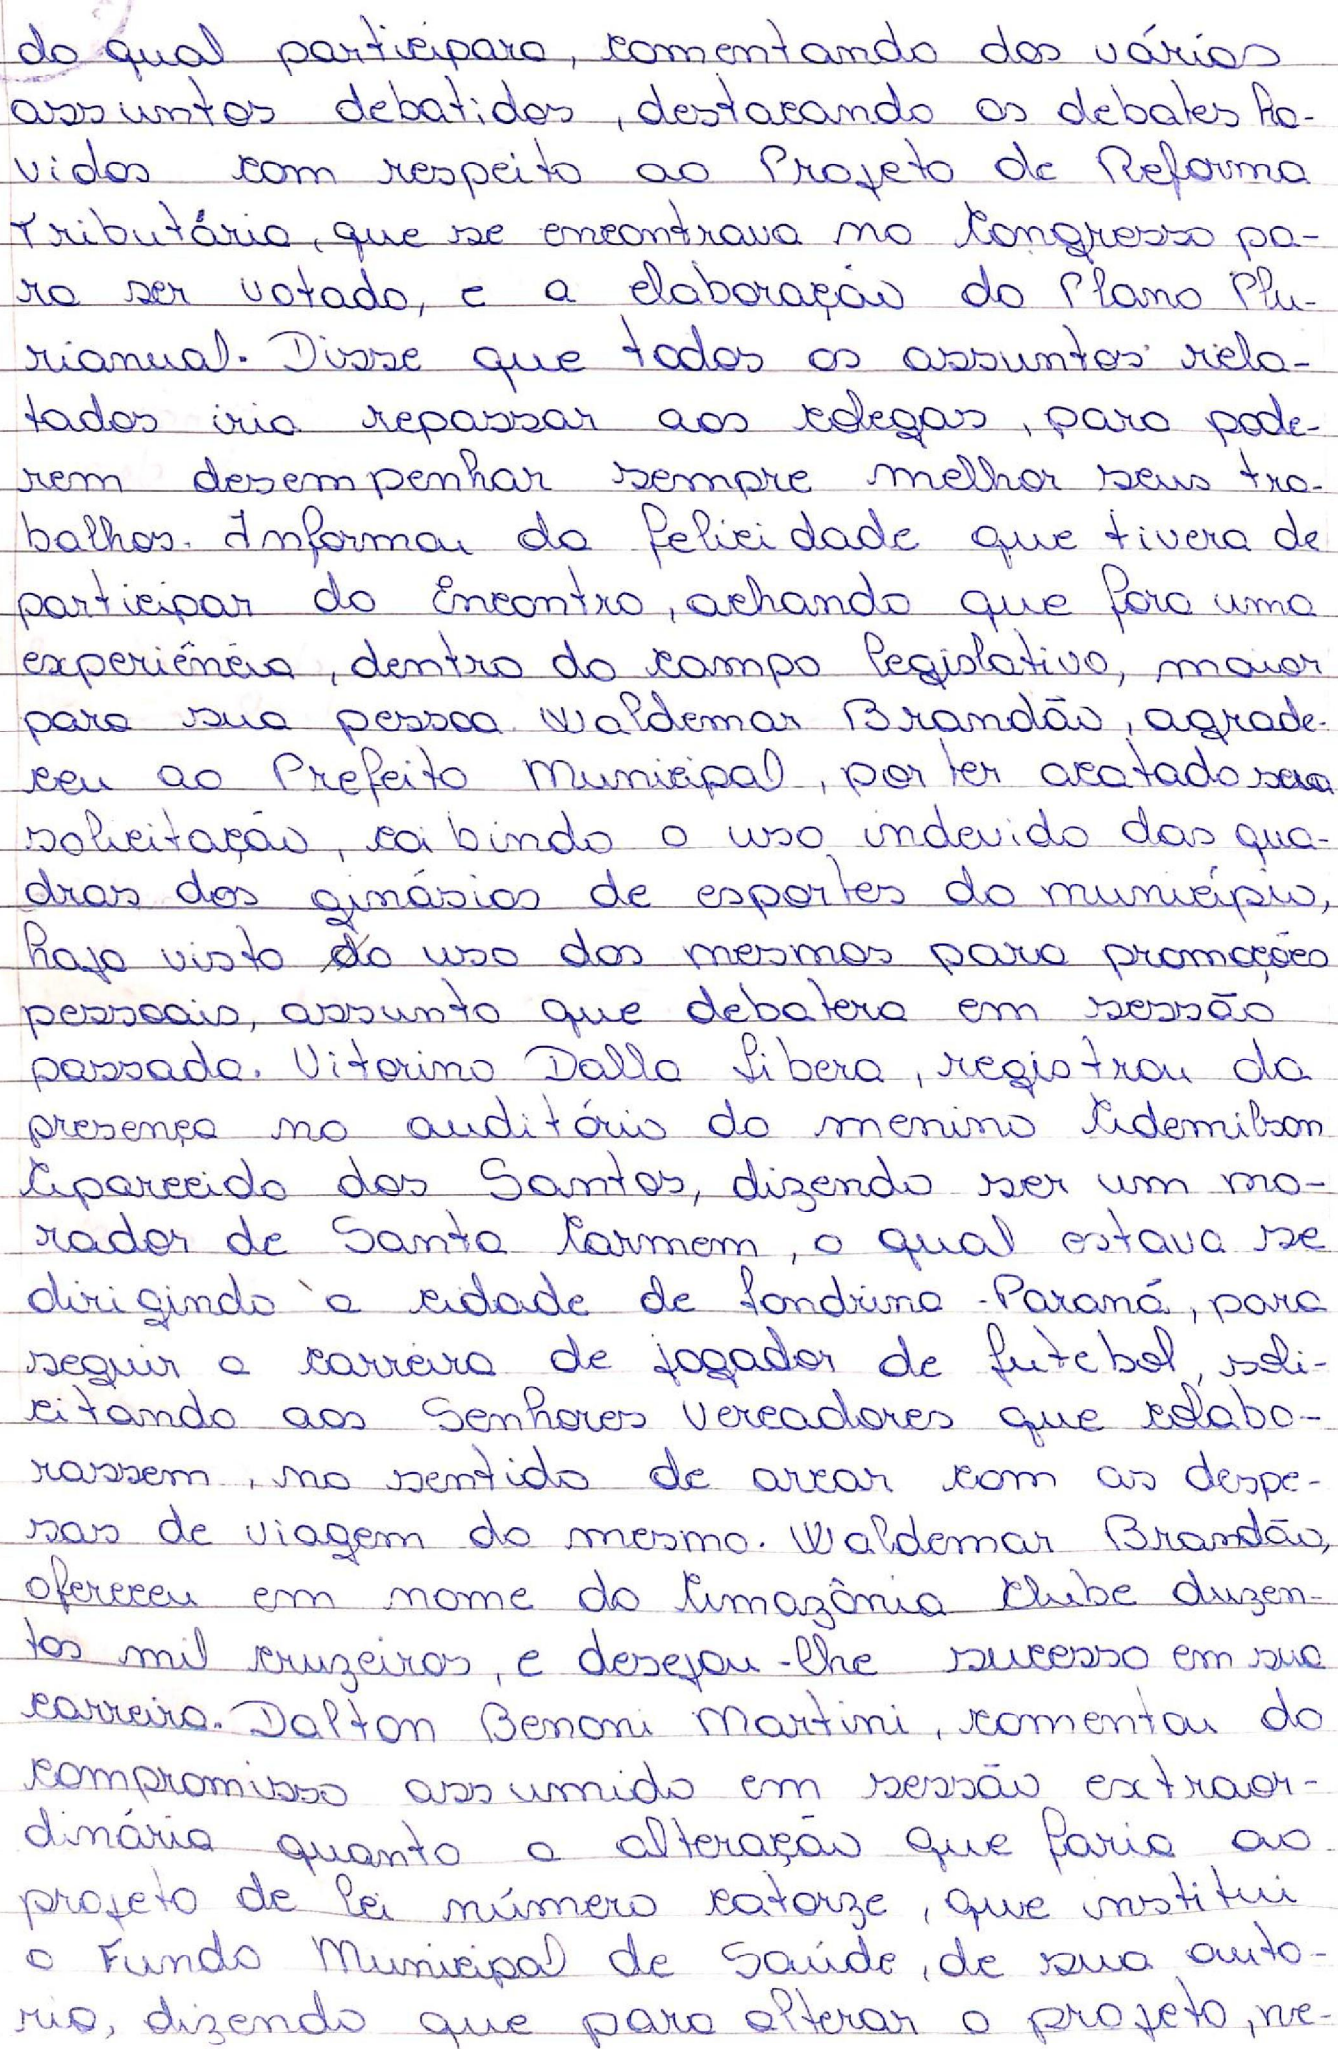 do qual participara, comentando dos vários
assuntos debatidos, destacando os debates ha-
vidos com respeito ao Projeto de Reforma
Tributária, que se encontrava no Congresso pa-
ra ser votado, e a elaboração do Plano Plu-
rianual. Disse que todos os assuntos rela-
tados iria repassar aos colegas, para pode-
rem desempenhar sempre melhor seus tra-
balhos. Informou da felicidade que tivera de
participar do Encontro, achando que fora uma
experiência, dentro do campo legislativo, maior
para sua pessoa. Waldemar Brandão, agrade-
ceu ao Prefeito Municipal, por ter acatado sua
solicitação, coibindo o uso indevido das qua-
dras dos ginásios de esportes do município,
haja visto do uso dos mesmos para promoções
pessoais, assunto que debatera em sessão
passada. Vitorino Dalla Libera, registrou da
presença no auditório do menino Ademilson
Aparecido dos Santos, dizendo ser um mo-
rador de Santa Carmem, o qual estava se
dirigindo à cidade de Londrina - Paraná, para
seguir a carreira de jogador de futebol, soli-
citando aos Senhores Vereadores que colabo-
rassem, no sentido de arcar com as despe-
sas de viagem do mesmo. Waldemar Brandão,
ofereceu em nome do Amazônia Clube duzen-
tos mil cruzeiros, e desejou-lhe sucesso em sua
carreira. Dalton Benoni Martini, comentou do
compromisso assumido em sessão extraor-
dinária quanto a alteração que faria ao
projeto de lei número catorze, que institui
o Fundo Municipal de Saúde, de sua auto-
ria, dizendo que para alterar o projeto, ne-